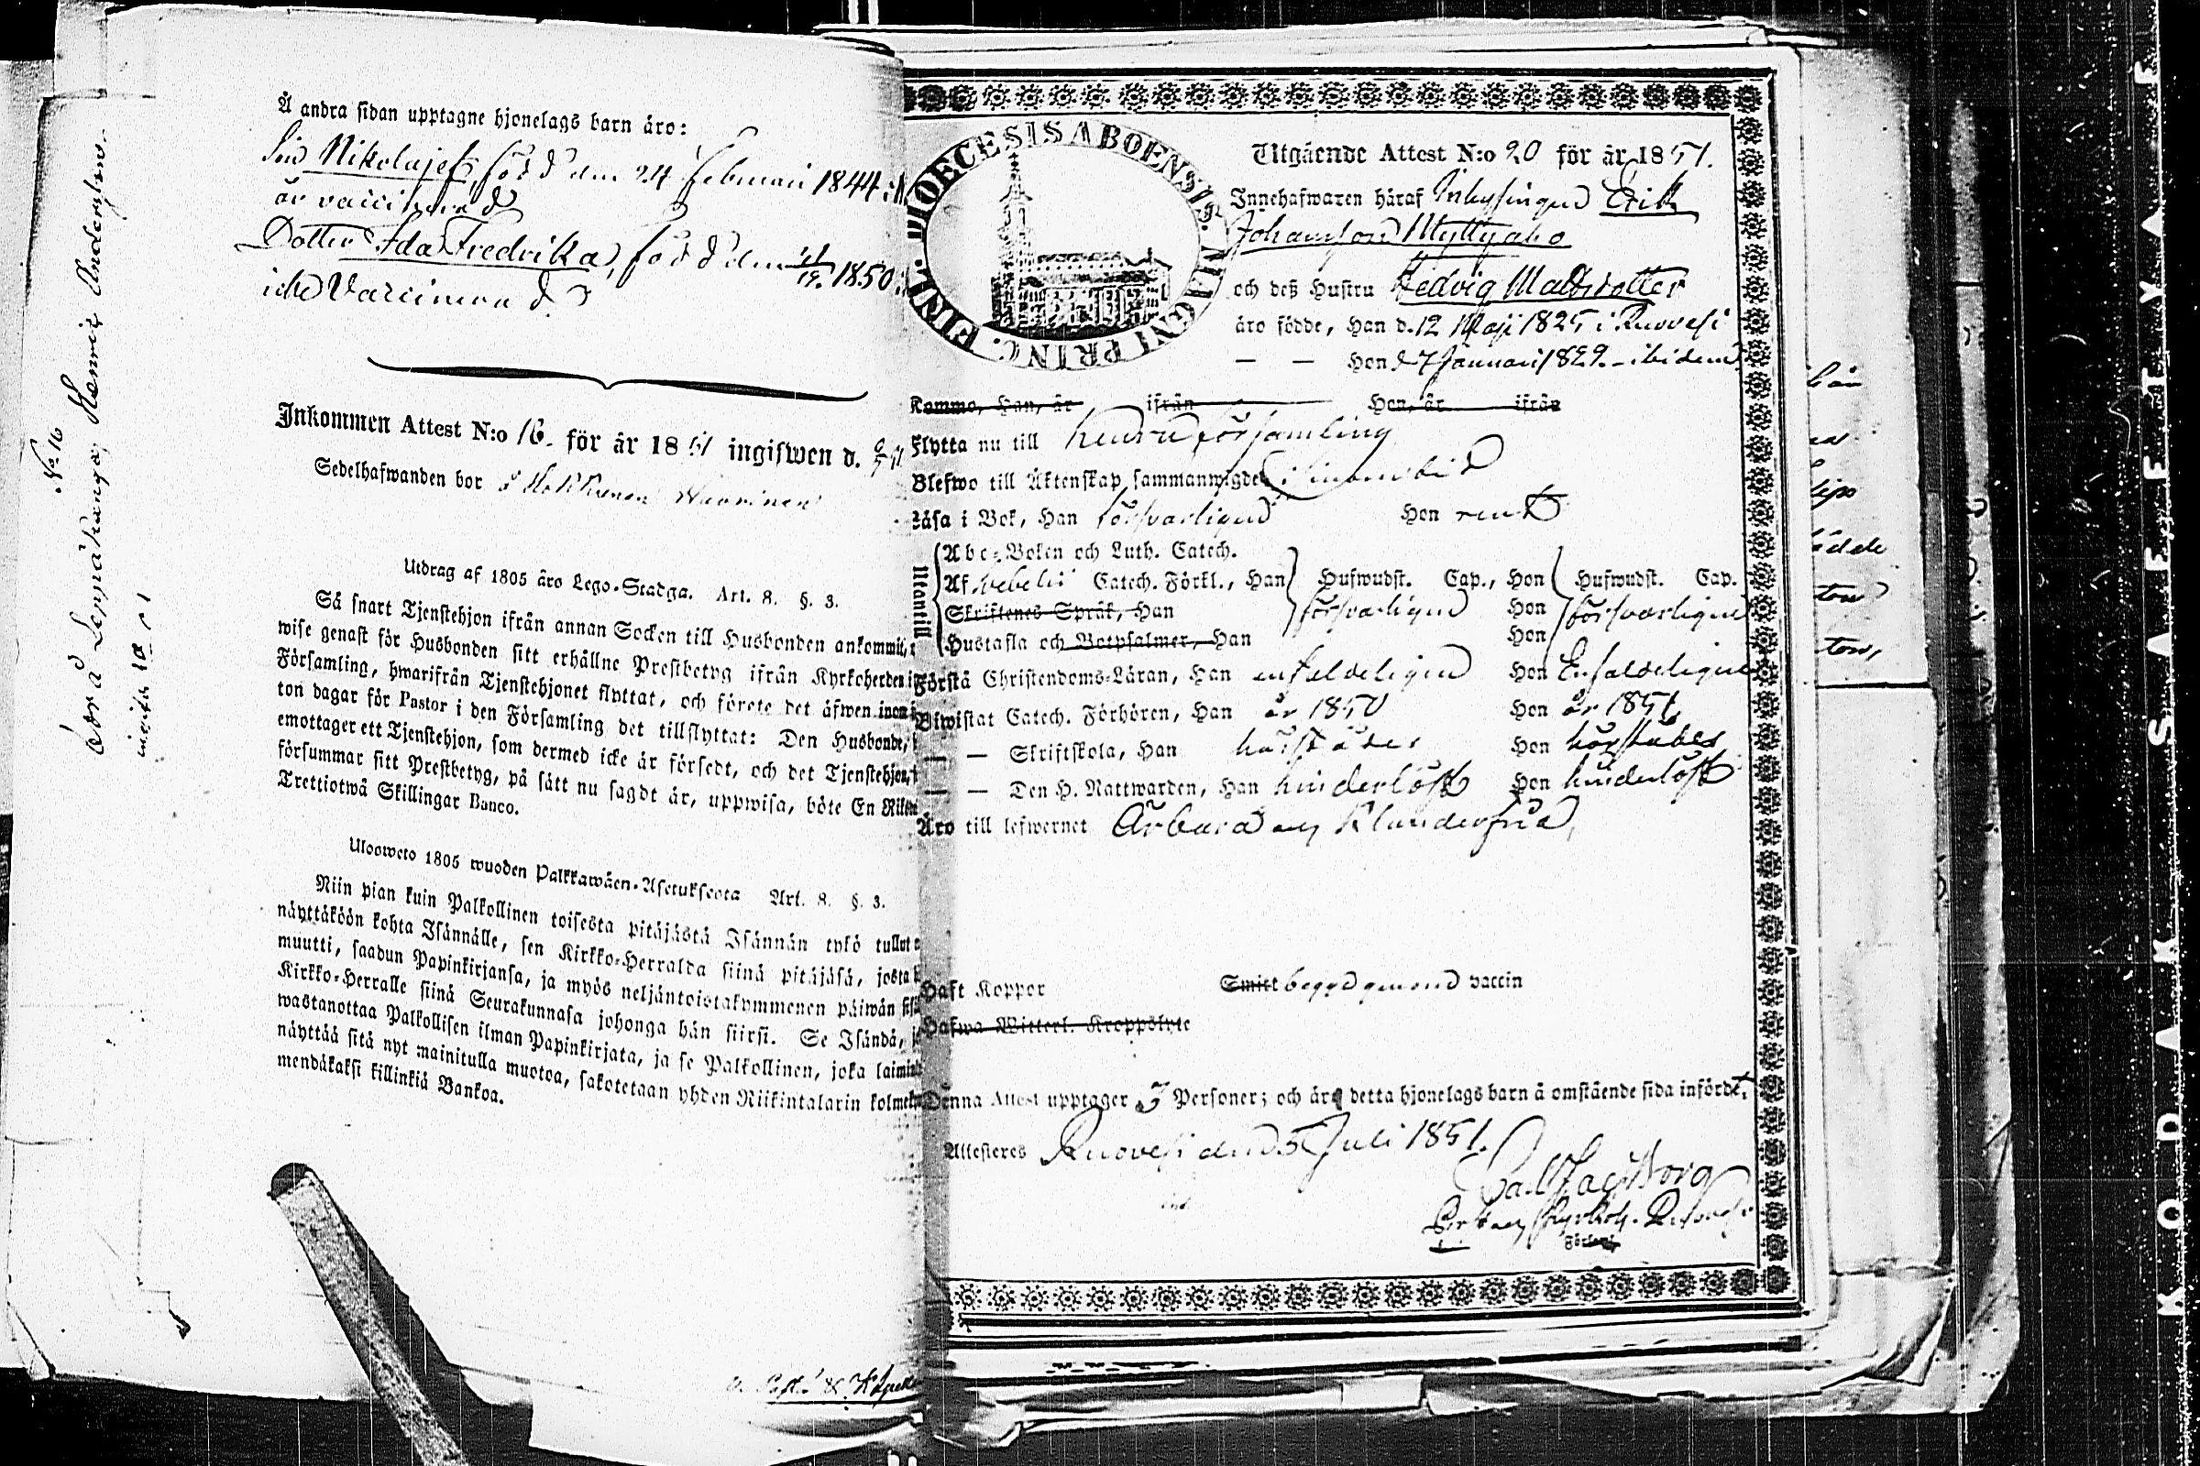 Å andra sidan upptagne hjonelags barn äro:
Son Nikolajef, född den 24 Februari 1844:
är vaccinerad
Dotter Ida Fredrika, född den 1850.
icke Vaccinerad
Inkommen Attest N:o 16. för år 1851 ingifwen d.
Sedelhafwanden bor
Utdrag af 1805 åro Lego-Stadga. Art. 8. §. 3.
Så snart Tjenstehjon ifrån annan Socken till Husbonden ankommit,
wise genast för Husbonden sitt erhållne Prestbetyg ifrån Kyrkoherden i
Församling, hwarifrån Tjenstehjonet flyttat, och förete det äfwen inom
ton dagar för Pastor i den Församling det tillflyttat: Den Husbonde,
emottager ett Tjenstehjon, som dermed icke är försedt, och det Tjenstehjon,
försummar sitt Prestbetyg, på sätt nu sagdt är, uppwisa, böte En
Trettiotwå Skillingar Banco.
Ulosweto 1805 wuoden Palkkawäen-Asetuksesta Art. 8. §. 3.
Niin pian kuin Palkollinen toisesta pitäjästä Isännän tykö tullut
näyttäköön kohta Isännälle, sen Kirkko-Herralda siinä pitäjäsä, josta
muutti, saadun Papinkirjansa, ja myös neljäntoistakymmenen päiwän
Kirkko-Herralle siinä Seurakunnasa johonga hän siirsi. Se Isändä,
wastanottaa Palkollisen ilman Papinkirjata, ja se Palkollinen, joka
näyttää sitä nyt mainitulla muotoa, sakotetaan yhden Riikintalarin
mendäkaksi killinkiä Bankoa.
N:o 16
Henric Andersson
DIOECESIS ABOENSIS. MAGNI PRINC. FINL.
Utgående Attest N:o 20 för år 1851.
Innehafwaren häraf Inhysingen Erik
Johansson Myllyaho
och deß Hustru Hedvig Matsdotter
äro födde, Han d. 12 Maji 1825 i Ruovesi
— — Hon d 7 Januari 1829. - ibidem
Komma, Han, är ifrån Hon, är ifrån
Flytta nu till Keuru församling
Blefwo till Äktenskap sammanwigde
Läsa i Bok, Han försvarligen Hon rent
Utantill
Abc-Boken och Luth. Catech.
Af Catech. Förkl., Han Hufwudst. Cap., Hon Hufwudst. Cap.
Skriftenes Språk, Han försvarligen Hon försvarligen
Hustafla och Botpsalmer, Han Hon
Förstå Christendoms-Läran, Han enfaldeligen Hon Enfaldeligen
Biwistat Catech. Förhören, Han år 1850 Hon år 1851
— — Skriftskola, Han härstädes Hon härstädes
— — Den H. Nattwarden, Han hinderlöst Hon hinderlöst
Äro till lefwernet Ärbara och Klanderfria,
Haft Koppor Smitt begge genom vaccin
Hafwa Witterl. Kroppslyte
Denna Attest upptager 3 Personer; och äro detta hjonelags barn å omstående sida införde.
Attesteras Ruovesi den 5 Juli 1851.
Förlaml.
KODAK SAFETY